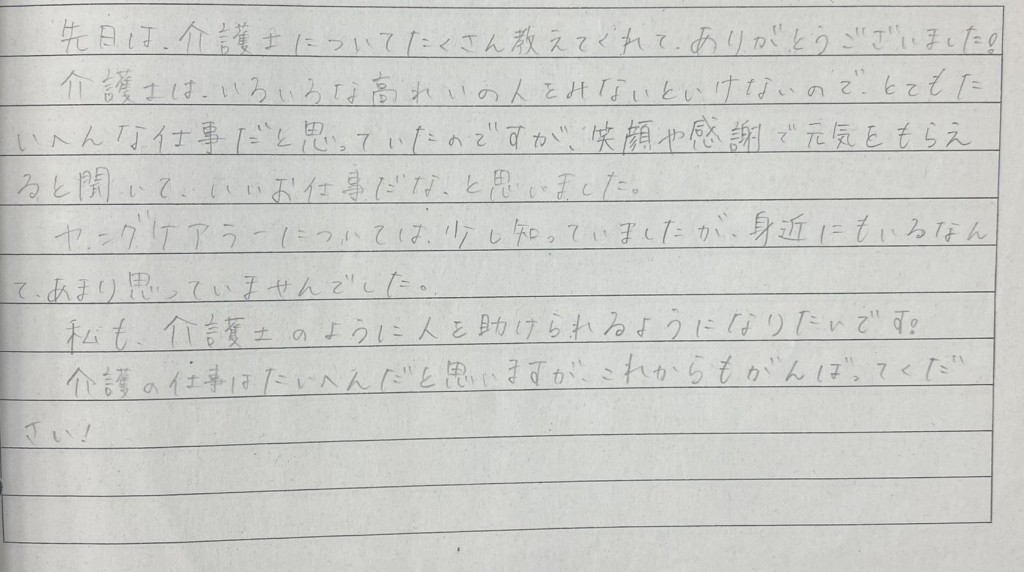 先日は、介護士についてたくさん教えてくれて、ありがとうございました!
介護士は、いろいろな高れいの人をみないといけないので、とてもた
いへんな仕事だと思っていたのですが、笑顔や感謝で元気をもらえ
ると聞いて、いいお仕事だな、と思いました。
ヤングケアラーについては、少し知っていましたが、身近にもいるなん
て、あまり思っていませんでした。
私も、介護士のように人を助けられるようになりたいです!
介護の仕事はたいへんだと思いますが、これからもがんばってくだ
さい!